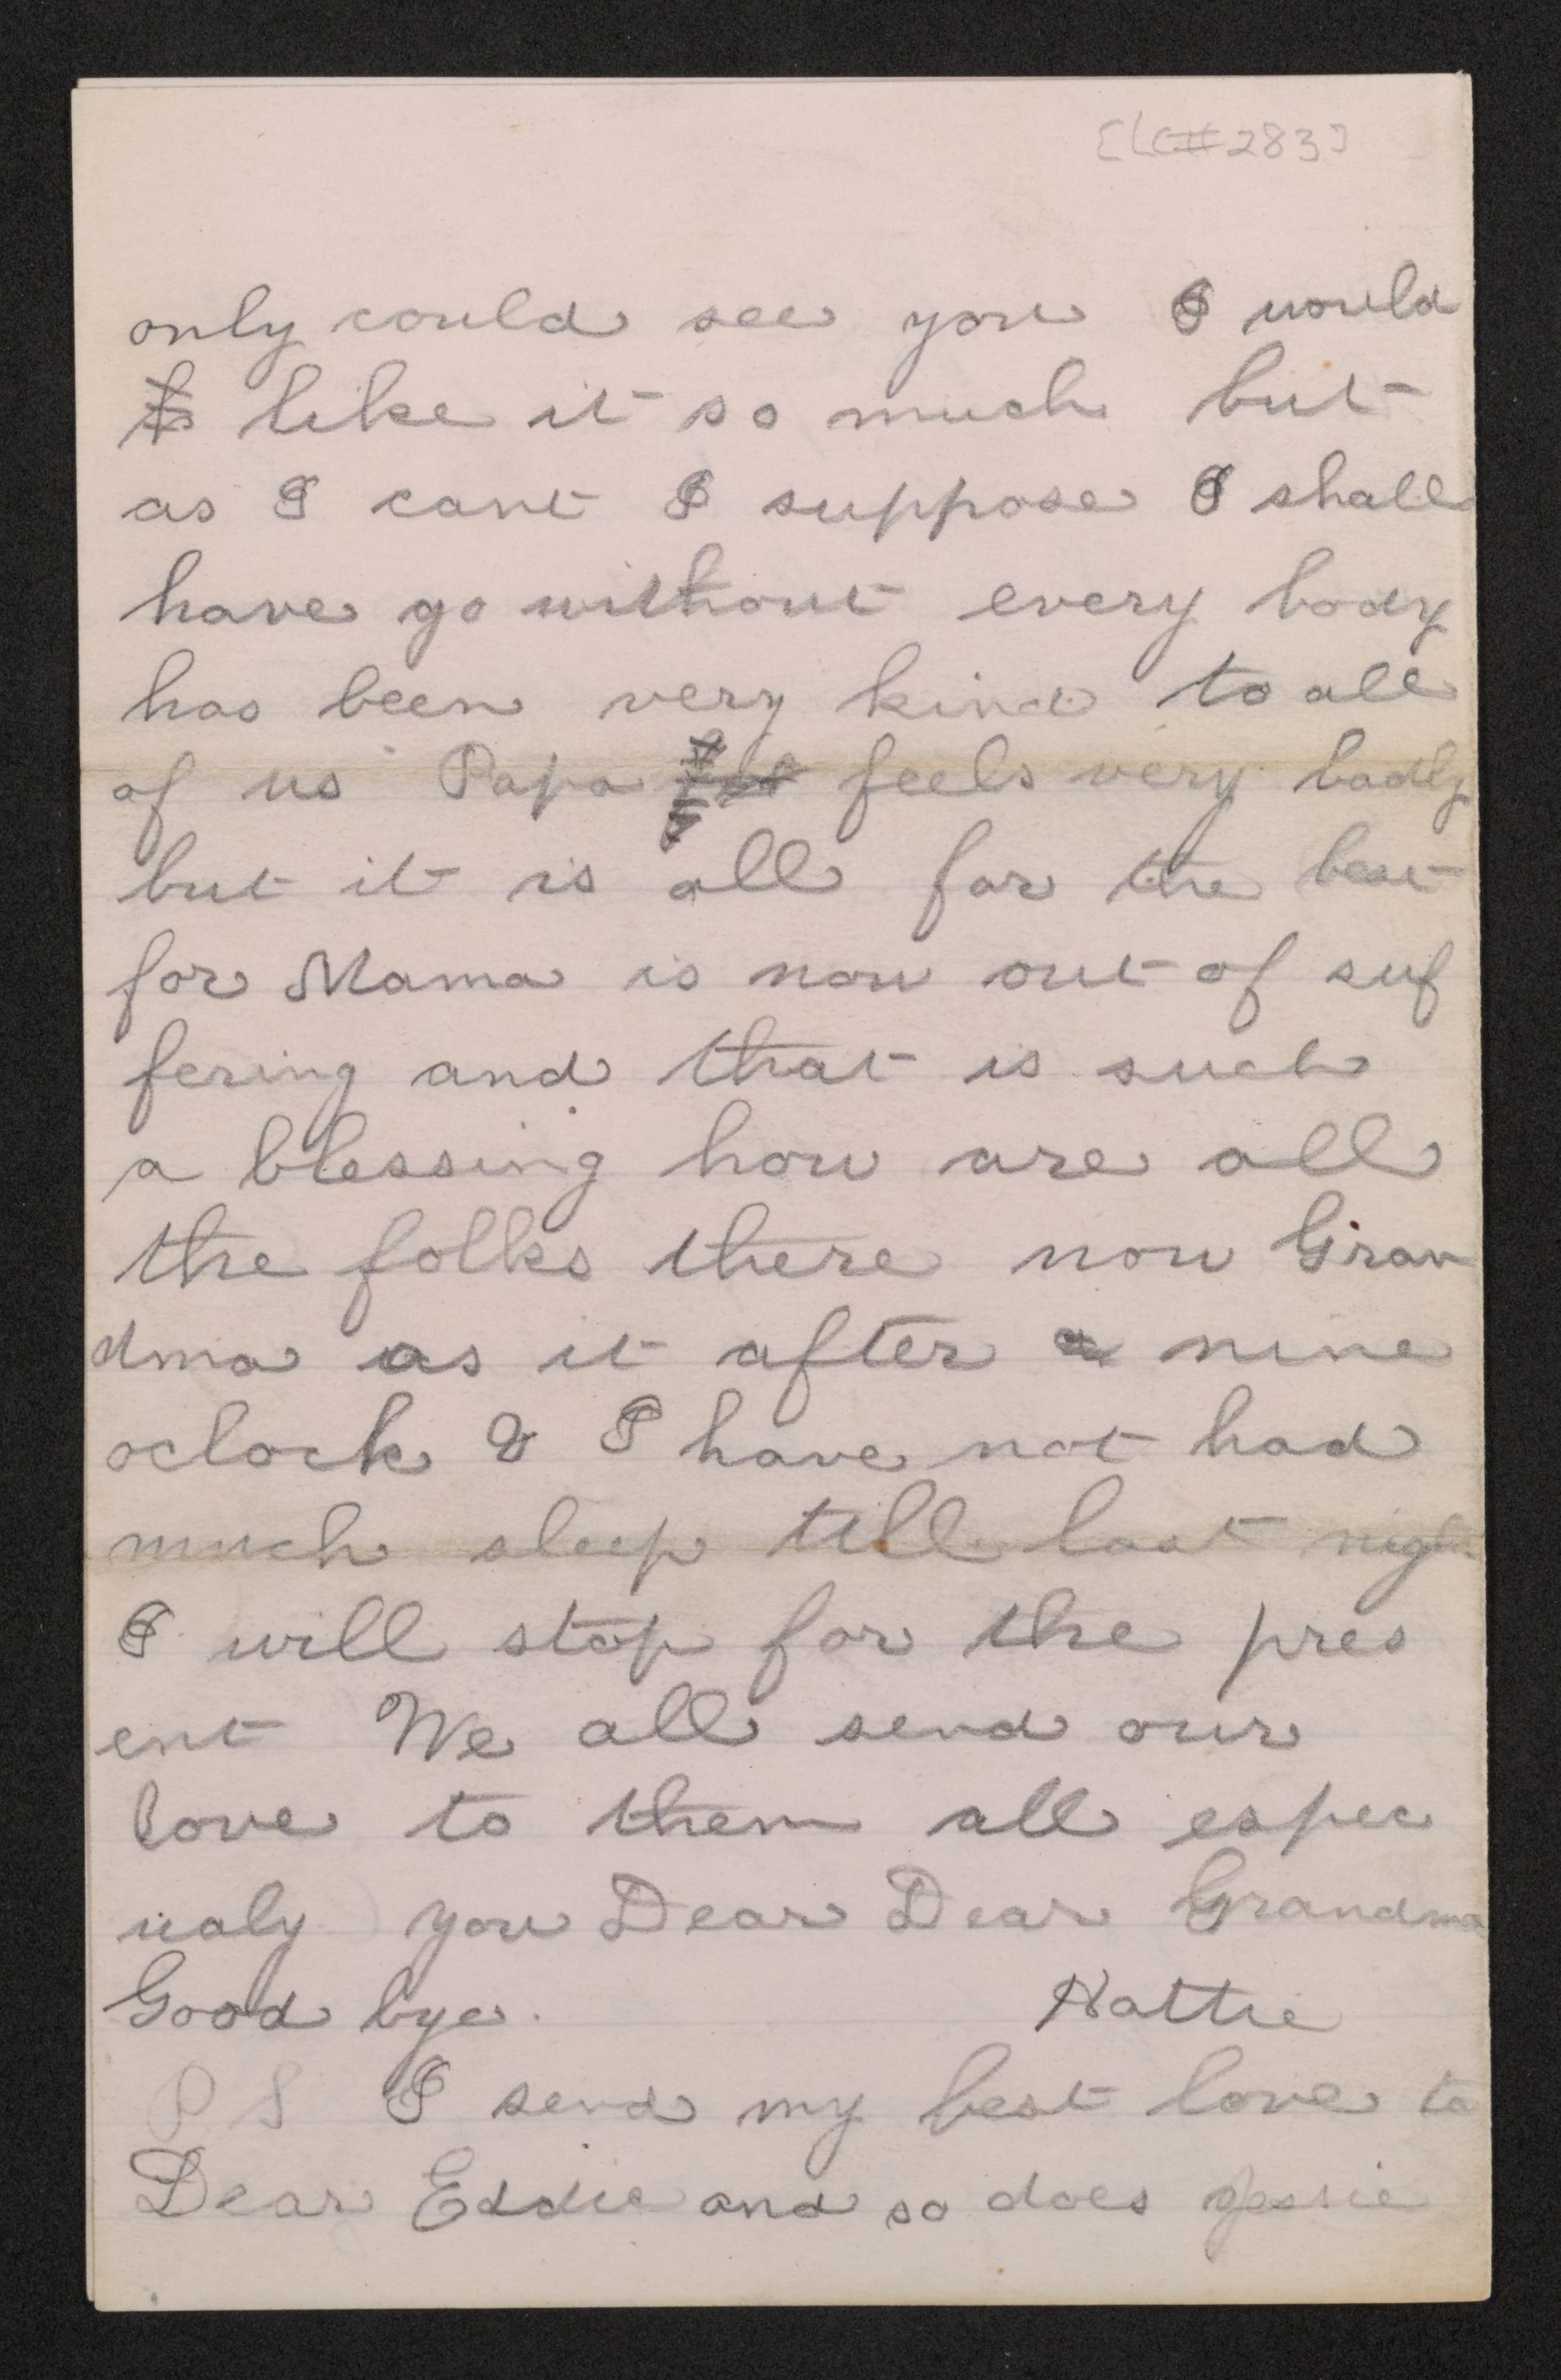 [LC#283]
only could see you I would
like it so much but
as I cant I suppose I shall
have go without every body
has been very kind to all
of us Papa feels very badly
but it is all for the best
for Mama is now out of suf
fering and that is such
a blessing how are all
the folks there now Gran
dma as it after nine
oclock & I have not had
much sleep till last night
I will stop for the pres
ent We all send our
love to them all espec
ialy you Dear Dear Grandma
Good bye. Hattie
P S I send my best love to
Dear Eddie and so does Jessie